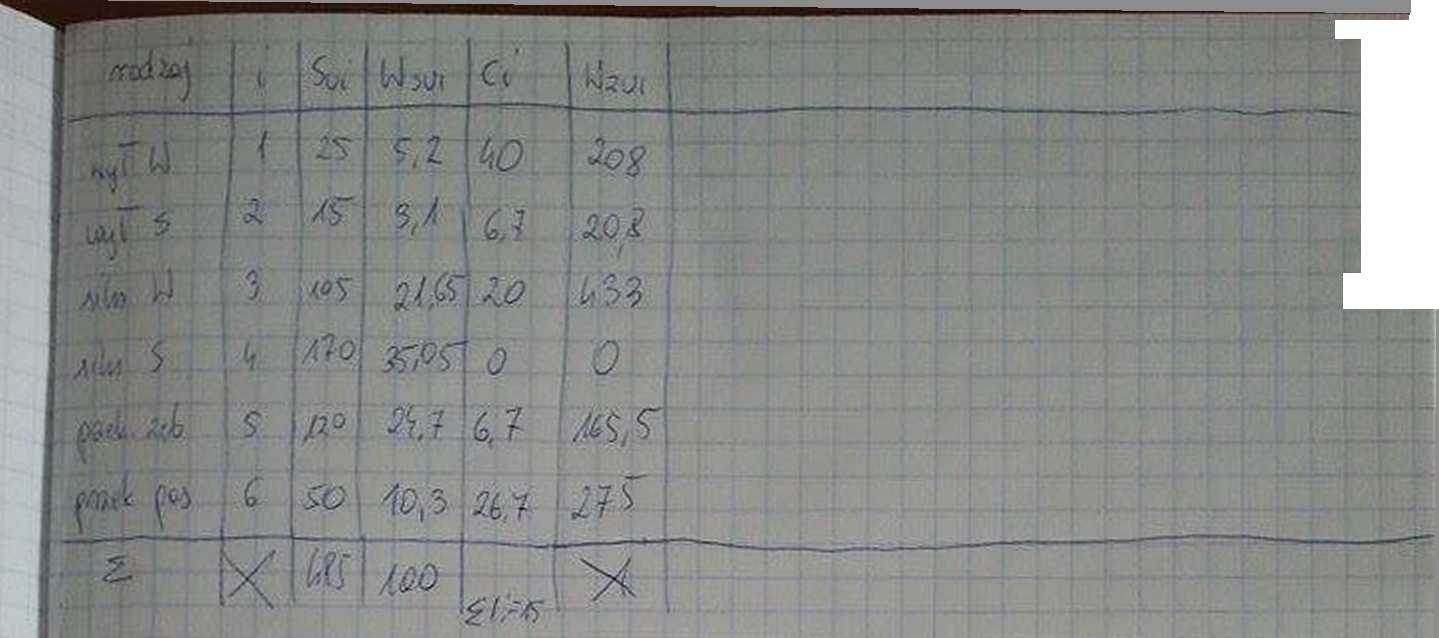 rodzaj i Sui Wsui Ci Wzui
wył W 1 25 5,2 40 208
wył S 2 15 3,1 6,7 20,8
siln W 3 105 21,65 20 433
siln S 4 170 35,05 0 0
przek. zęb. 5 120 24,7 6,7 165,5
przek pas 6 50 10,3 26,7 275
Σ X 485 100 X
Σli=15